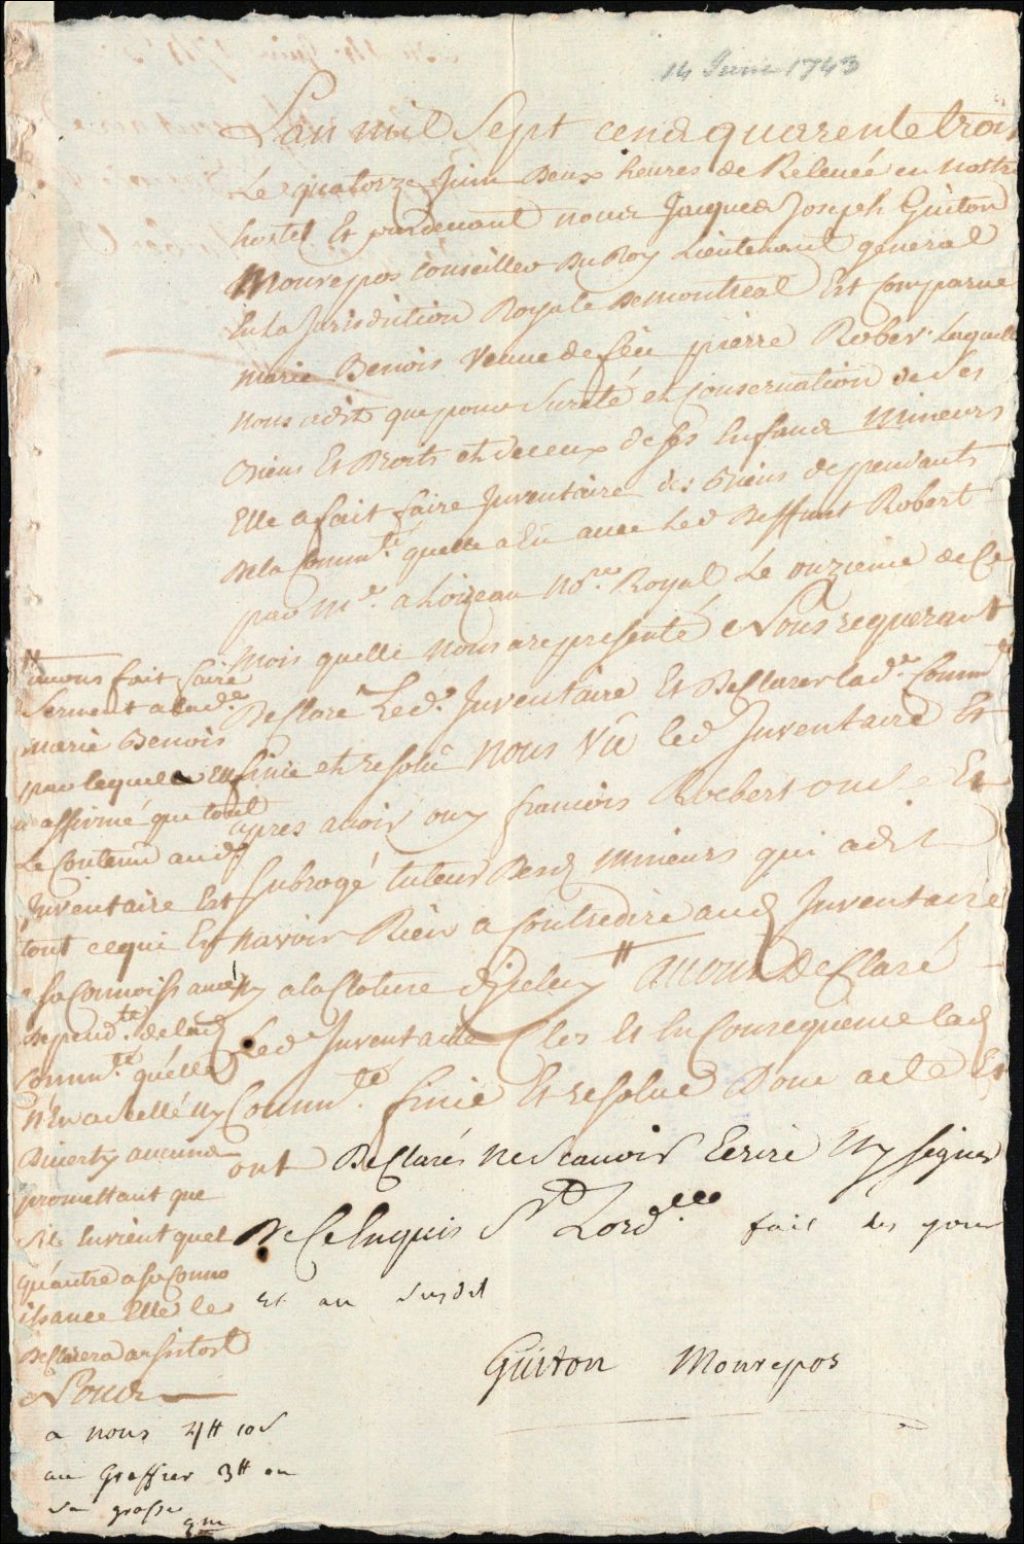 14 Juin 1743
L'an mil Sept cend quarente trois
Le quatorze Juin Deux heures de Releuée en nottre
hostel Et pardeuant nous Jacques Joseph Guiton
Monrepos Conseiller Du Roy Lieutenant general
En La Jurisdiction Royale de montreal Est Comparue
marie Benois Veuue de feu pierre Rober Laquelle
nous a dit que pour Sureté et Conseruation de Ses
Biens Et Droits et de ceux de ses Enfans Mineurs
Elle a fait faire Inventaire des Biens deppendants
De la Comm.té quelle a Eu auec Led Deffunt Robert
par M.e a Loiseau No.re Royal Le onzieme de Ce
mois quelle nous a representé Nous requerant
De Clore Led.t Inventaire Et De Clarer lad.e Comm.té
finie et resolu Nous Vu led Inventaire Et
apres auoir ouy francois Roebert oncle Et
Subrogé tuteur Desd mineurs qui a dit
navoir Rien a Contredire aud Inventaire
ny a la Cloture d'Jceluy # auons De Claré
Led. Inventaire Clos Et En Consequence lad
Comm.té finie Et resolue Dont acte Et
ont DeClarés ne Scauoir Ecrire Ny signer
De Ce Enquis S.t Lord.ce fait les jour
et an susdit
Guiton Monrepos
# auons fait faire
Serment a lad.e
marie Benois
par lequel Elle
a affirmé que tout
Le Contenu aud.
Inventaire Est
tout ce qui Est
a sa Connoissance
depend.te de lad
Comm.té quelle
N'En a cellé ny
Diverty aucuns
promettant que
s'il Envient quel
qu'autre a sa Conno
issance Elle le
DeClarera aussitost
Nous
a nous 4# 10s
au Greffier 3# en
sa grosse
gm